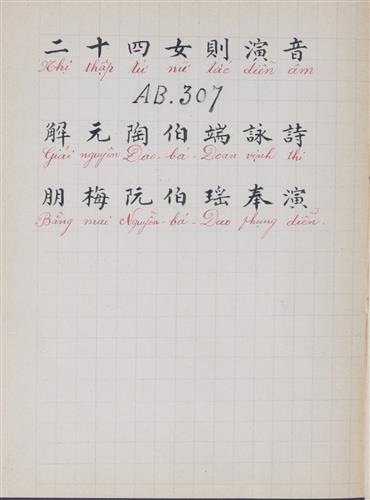 二十四女則演音
Nhị thập tứ nữ tắc diễn âm
AB.307
解元陶伯端詠詩
Giải nguyên Đào-bá-Đoan vịnh thi
朋梅阮伯瑶奉演
Bằng mai Nguyễn-bá-Dao phụng diễn.